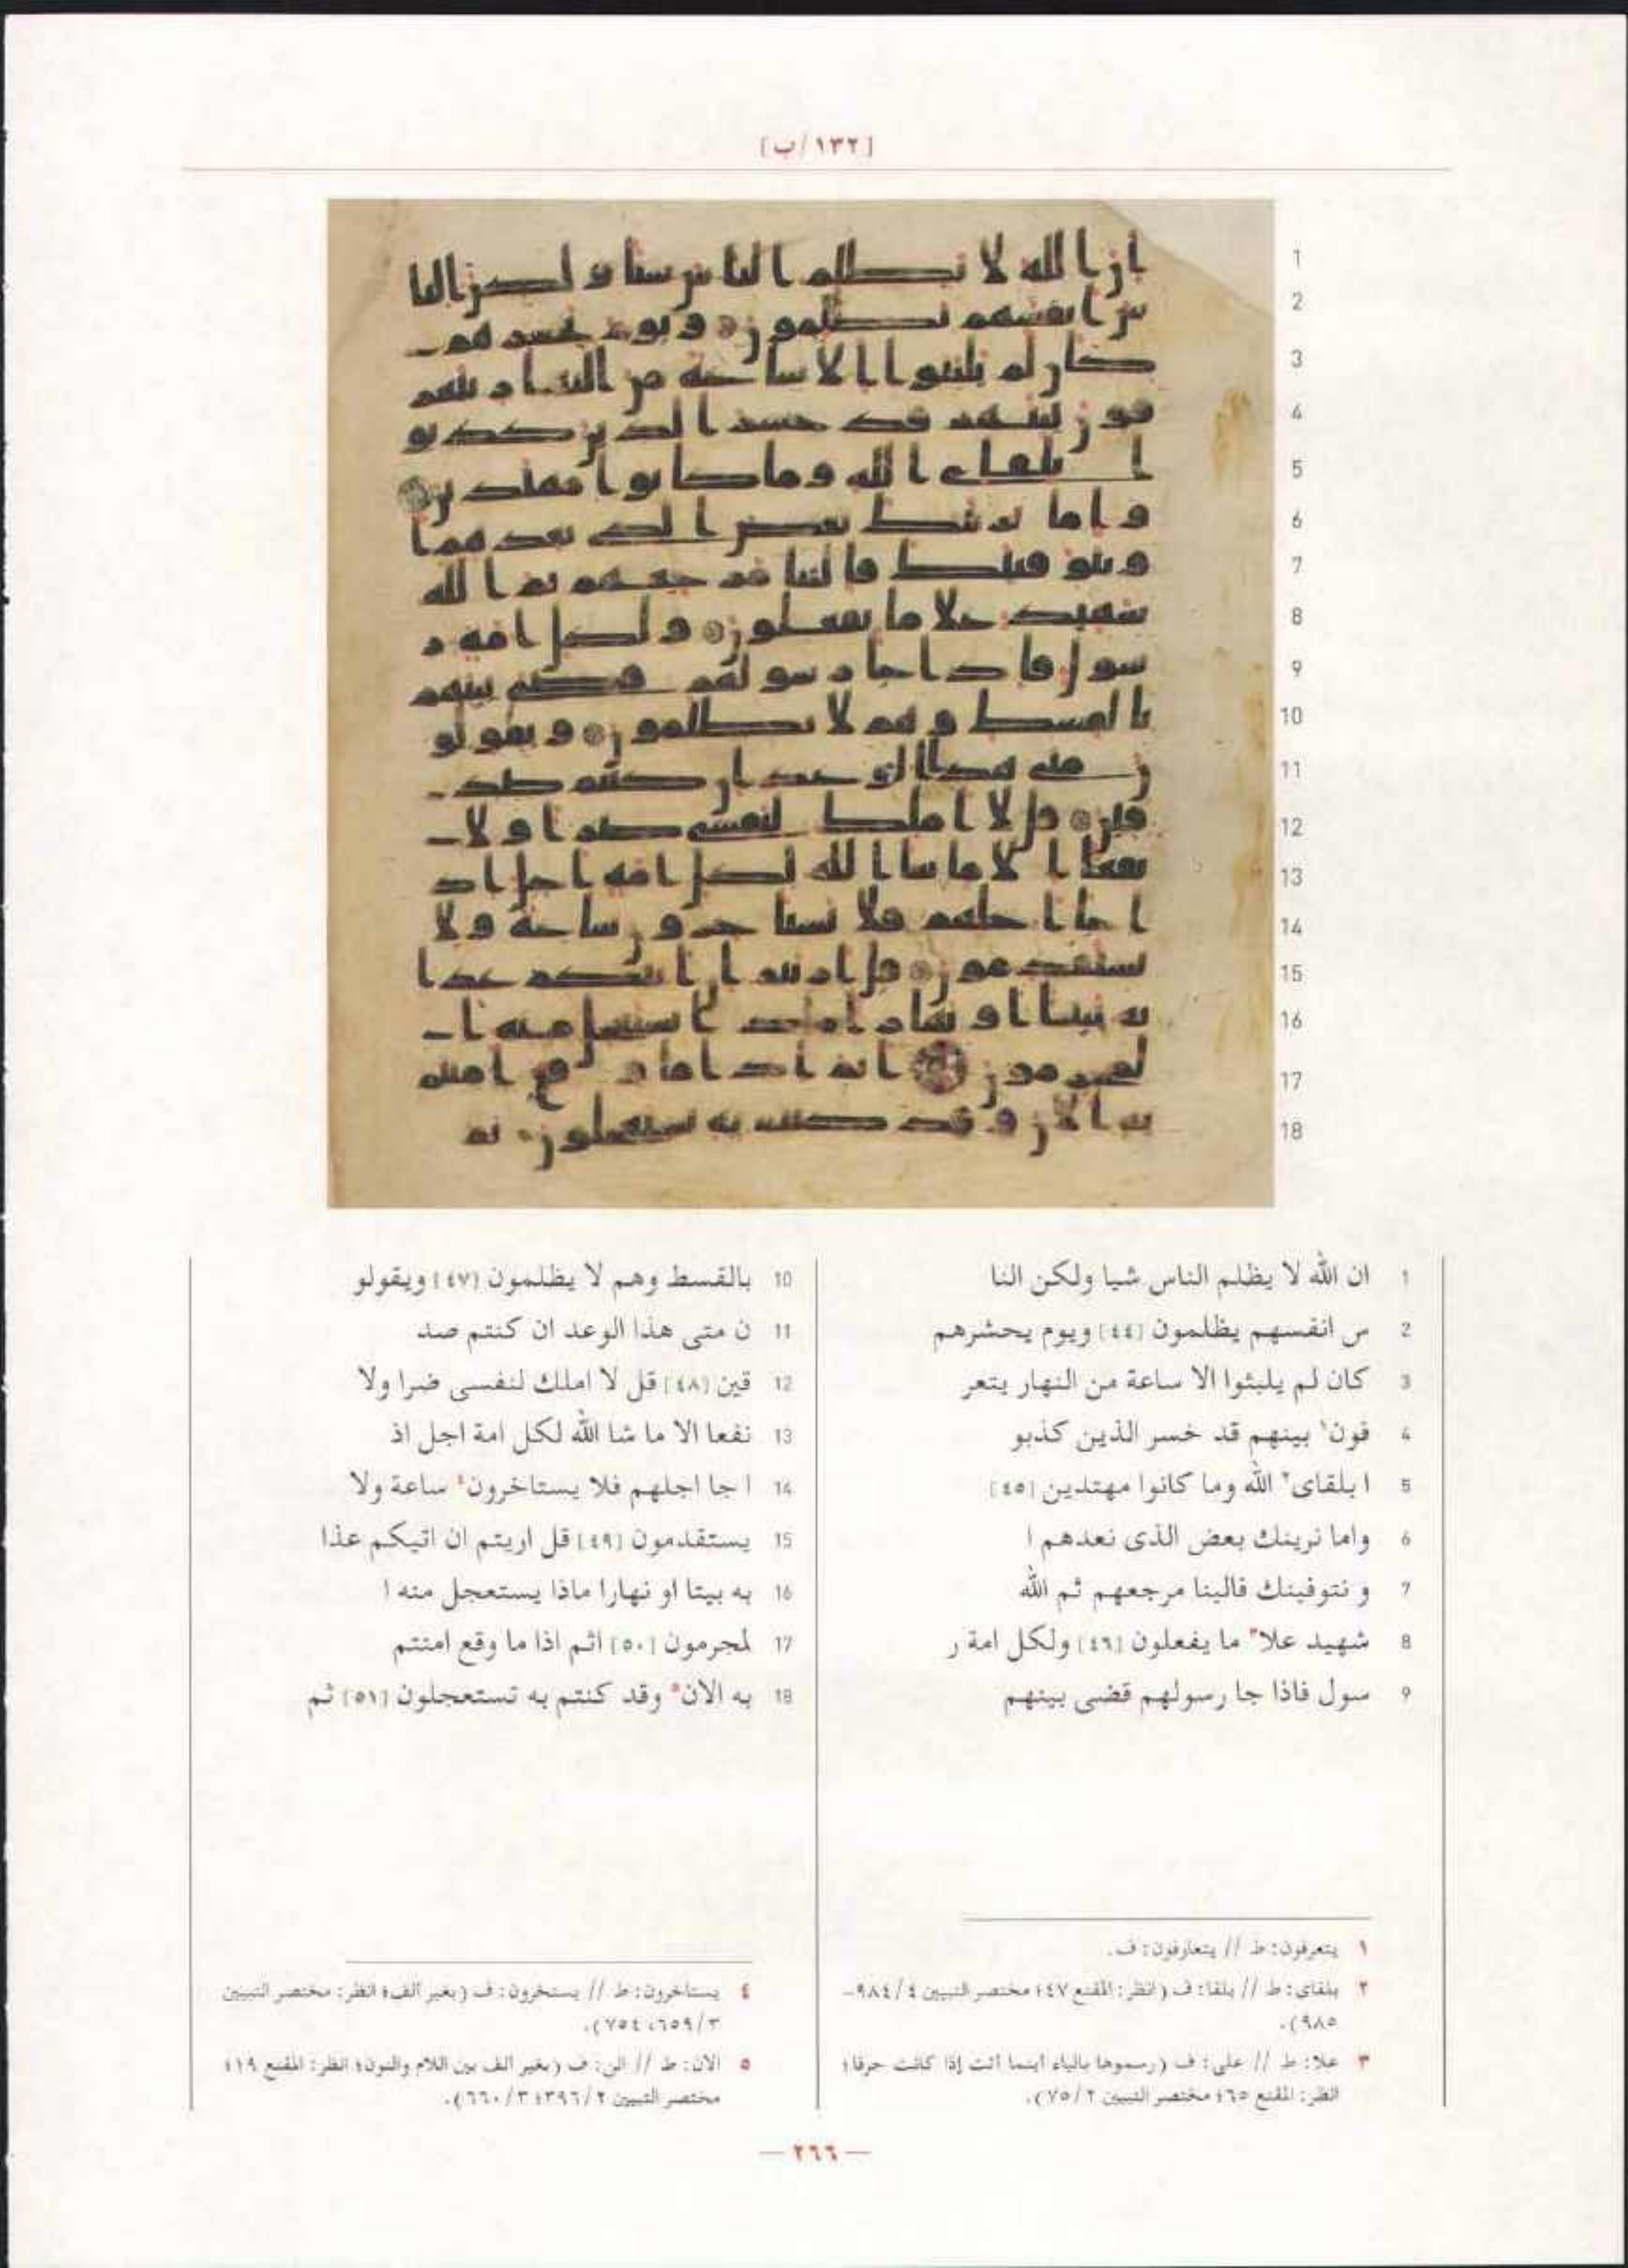 [١٣٢/ب]
1 ان الله لا يظلم الناس شيا ولكن النا
2 س انفسهم يظلمون [٤٤] ويوم يحشرهم
3 كان لم يلبثوا الا ساعة من النهار يتعر
4 فون١ بينهم قد خسر الذين كذبو
5 ا بلقاى٢ الله وما كانوا مهتدين [٤٥]
6 واما نرينك بعض الذى نعدهم ا
7 و نتوفينك فالينا مرجعهم ثم الله
8 شهيد علا٣ ما يفعلون [٤٦] ولكل امة ر
9 سول فاذا جا رسولهم قضى بينهم
10 بالقسط وهم لا يظلمون [٤٧] ويقولو
11 ن متى هذا الوعد ان كنتم صد
12 قين [٤٨] قل لا املك لنفسى ضرا ولا
13 نفعا الا ما شا الله لكل امة اجل اذ
14 ا جا اجلهم فلا يستاخرون٤ ساعة ولا
15 يستقدمون [٤٩] قل اريتم ان اتيكم عذا
16 به بيتا او نهارا ماذا يستعجل منه ا
17 لمجرمون [٥٠] اثم اذا ما وقع امنتم
18 به الان٥ وقد كنتم به تستعجلون [٥١] ثم
١ يتعرفون: ط // يتعارفون: ف.
٢ بلقاى: ط // بلقا: ف (انظر: المقنع ٤٧؛ مختصر التبيين ٤/ ٩٨٤-
٩٨٥).
٣ علا: ط // على: ف (رسموها بالياء أينما أتت إذا كانت حرفا؛
انظر: المقنع ٦٥؛ مختصر التبيين ٢/ ٧٥).
٤ يستاخرون: ط // يستخرون: ف (بغير ألف؛ انظر: مختصر التبيين
٣/ ٦٥٩، ٧٥٤).
٥ الان: ط // الن: ف (بغير ألف بين اللام والنون؛ انظر: المقنع ١٩؛
مختصر التبيين ٢/ ٣٩٦؛ ٣/ ٦٦٠).
— ٢٦٦ —